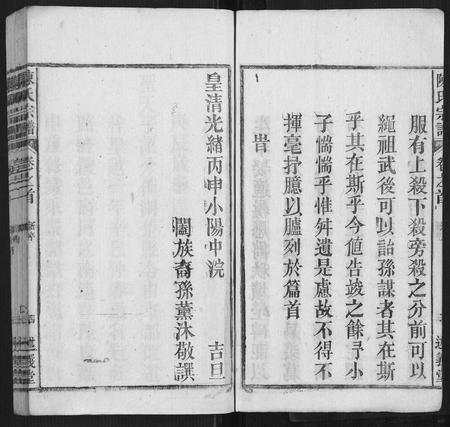 陳氏宗譜
卷之首
道義堂
服有上殺下殺旁殺之分前可以
繩祖武後可以詒孫謀者其在斯
乎其在斯乎今値告竣之餘予小
子惴惴乎惟舛遺是慮故不得不
揮毫抒臆以臚列於篇首
旹
皇清光緒丙申小陽中浣
吉旦
闔族裔孫薰沐敬譔
陳氏宗譜
卷之首
道義堂